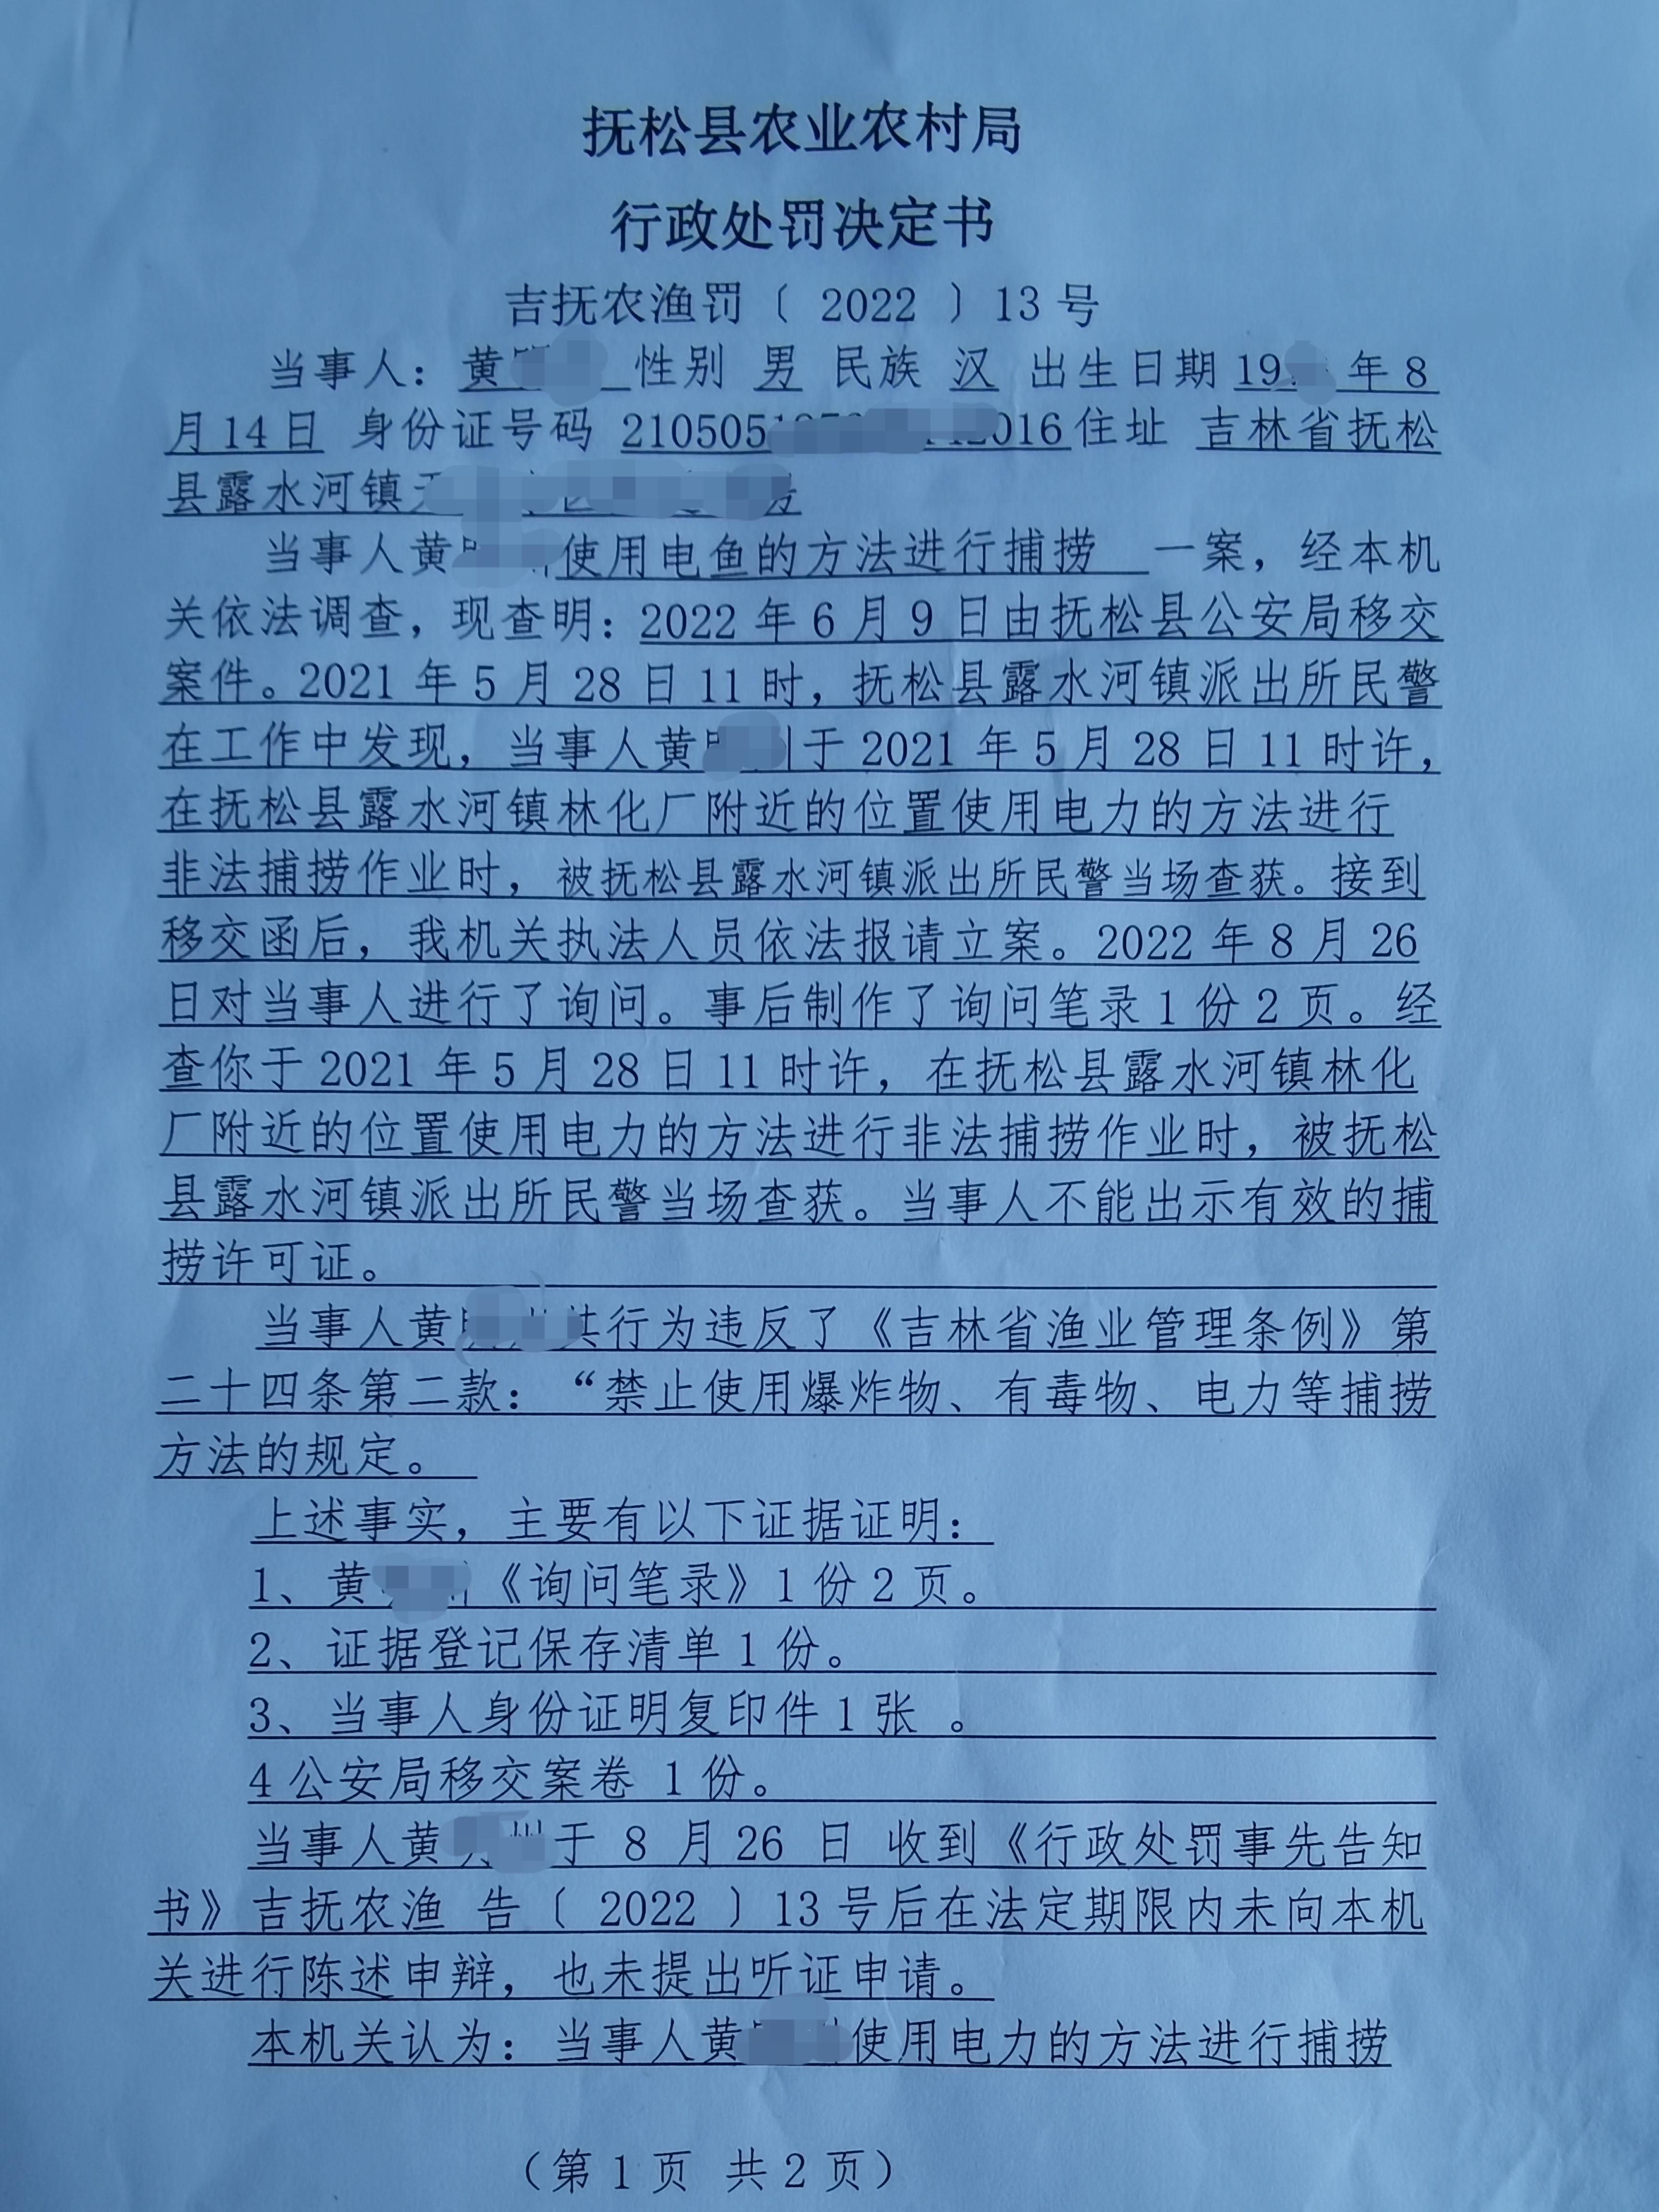 抚松县农业农村局
行政处罚决定书
吉抚农渔罚〔 2022 〕13 号
当事人：黄 性别 男 民族 汉 出生日期 19 年 8
月 14 日 身份证号码 210505 2016 住址 吉林省抚松
县露水河镇
当事人黄 使用电鱼的方法进行捕捞 一案，经本机
关依法调查，现查明：2022 年 6 月 9 日由抚松县公安局移交
案件。2021 年 5 月 28 日 11 时，抚松县露水河镇派出所民警
在工作中发现，当事人黄 于 2021 年 5 月 28 日 11 时许，
在抚松县露水河镇林化厂附近的位置使用电力的方法进行
非法捕捞作业时，被抚松县露水河镇派出所民警当场查获。接到
移交函后，我机关执法人员依法报请立案。2022 年 8 月 26
日对当事人进行了询问。事后制作了询问笔录 1 份 2 页。经
查你于 2021 年 5 月 28 日 11 时许，在抚松县露水河镇林化
厂附近的位置使用电力的方法进行非法捕捞作业时，被抚松
县露水河镇派出所民警当场查获。当事人不能出示有效的捕
捞许可证。
当事人黄 其行为违反了《吉林省渔业管理条例》第
二十四条第二款：“禁止使用爆炸物、有毒物、电力等捕捞
方法的规定。
上述事实，主要有以下证据证明：
1、黄 《询问笔录》1 份 2 页。
2、证据登记保存清单 1 份。
3、当事人身份证明复印件 1 张 。
4 公安局移交案卷 1 份。
当事人黄 于 8 月 26 日 收到《行政处罚事先告知
书》吉抚农渔 告〔 2022 〕13 号后在法定期限内未向本机
关进行陈述申辩，也未提出听证申请。
本机关认为：当事人黄 使用电力的方法进行捕捞
（第 1 页 共 2 页）